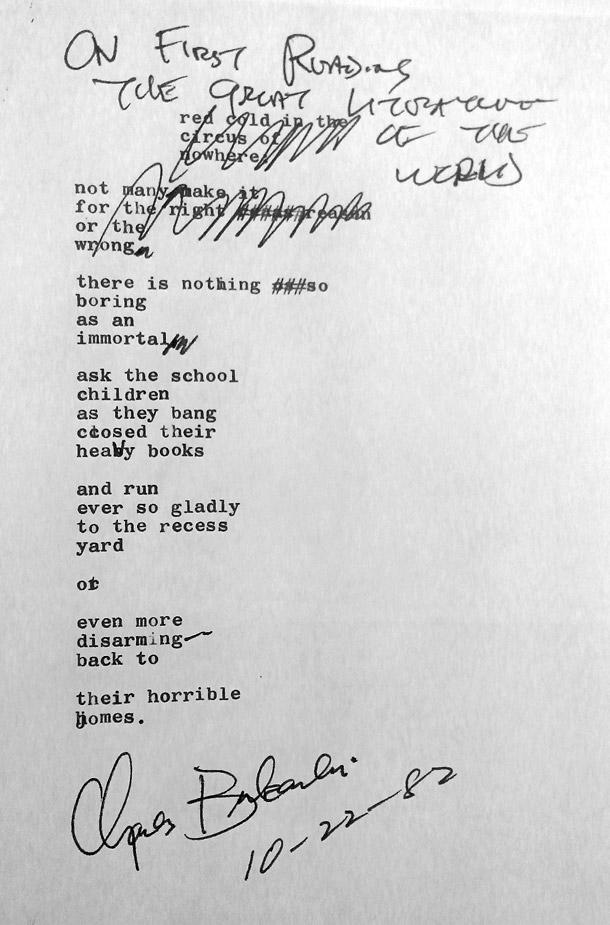 ON FIRST READING
THE GREAT LITERATURE
OF THE
WORLD
red cold in the
circus of
nowhere
not many make it
for the right ##### reason
or the
wrong
there is nothing ###so
boring
as an
immortal
ask the school
children
as they bang
closed their
heavy books
and run
ever so gladly
to the recess
yard
or
even more
disarming—
back to
their horrible
homes.
Charles Bukowski
10-22-82